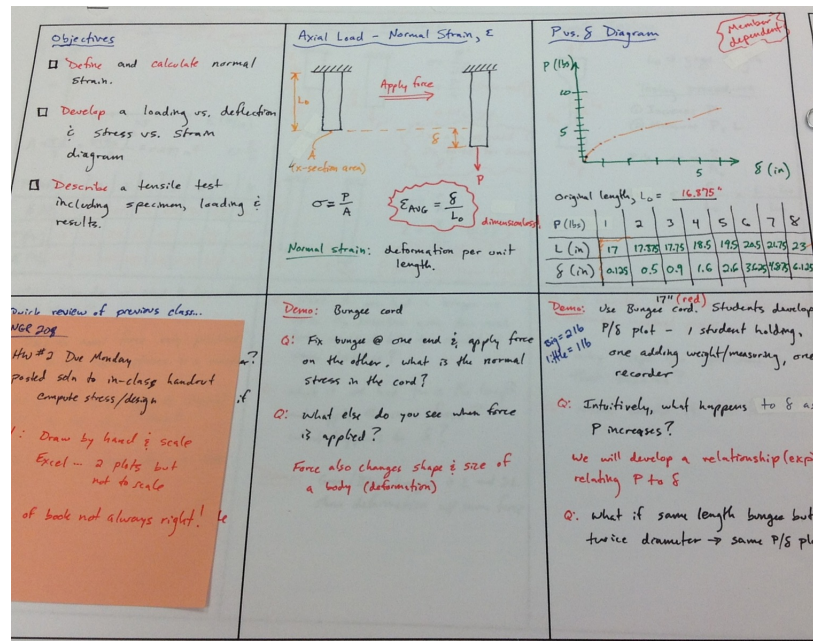 Objectives
□ Define and calculate normal
strain.
□ Develop a loading vs. deflection
& stress vs. strain
diagram
□ Describe a tensile test
including specimen, loading &
results.
Axial Load - Normal Strain, ε
Apply force
L₀
δ
A
(x-section area)
P
σ = P/A
ε AVG = δ/L₀
dimensionless!
Normal strain: deformation per unit
length.
P vs. δ Diagram
Member
dependent
P (lbs)
10
5
5
δ (in)
Original length, L₀ = 16.875"
P (lbs) 1 2 3 4 5 6 7 8
L (in) 17 17.375 17.75 18.5 19.5 20.5 21.75 23
δ (in) 0.125 0.5 0.9 1.6 2.6 3.625 4.875 6.125
Quick review of previous class...
NGR 208
HW #2 Due Monday
posted soln to in-class handout
compute stress/design
: Draw by hand & scale
Excel -- 2 plots but
not to scale
of book not always right!
?
if
Demo: Bungee cord
Q: Fix bungee @ one end & apply force
on the other, what is the normal
stress in the cord?
Q: What else do you see when force
is applied?
Force also changes shape & size of
a body (deformation)
17" (red)
Demo: Use Bungee cord. Students develop
big = 2 lb
little = 1 lb
P/δ plot - 1 student holding,
one adding weight/measuring, one
recorder
Q: Intuitively, what happens to δ as
P increases?
We will develop a relationship (exp
relating P to δ
Q: What if same length bungee but
twice diameter → same P/δ pl